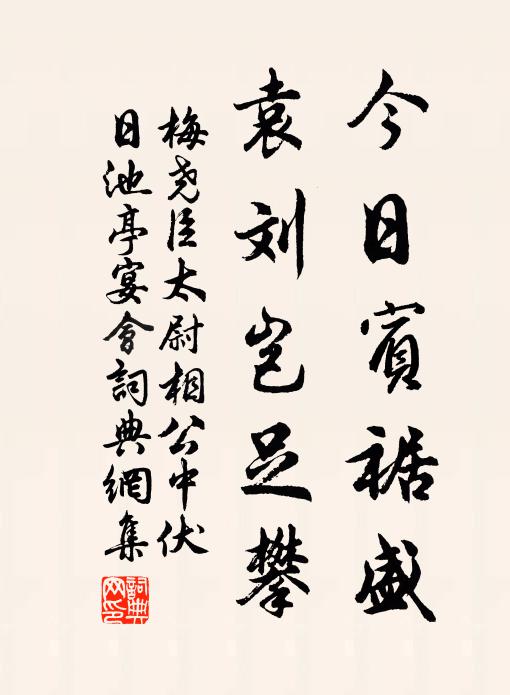 今日賓裾盛
袁刘岂足攀
梅尧臣太尉相公中伏
日池亭宴會詞典網集
詞典
网印